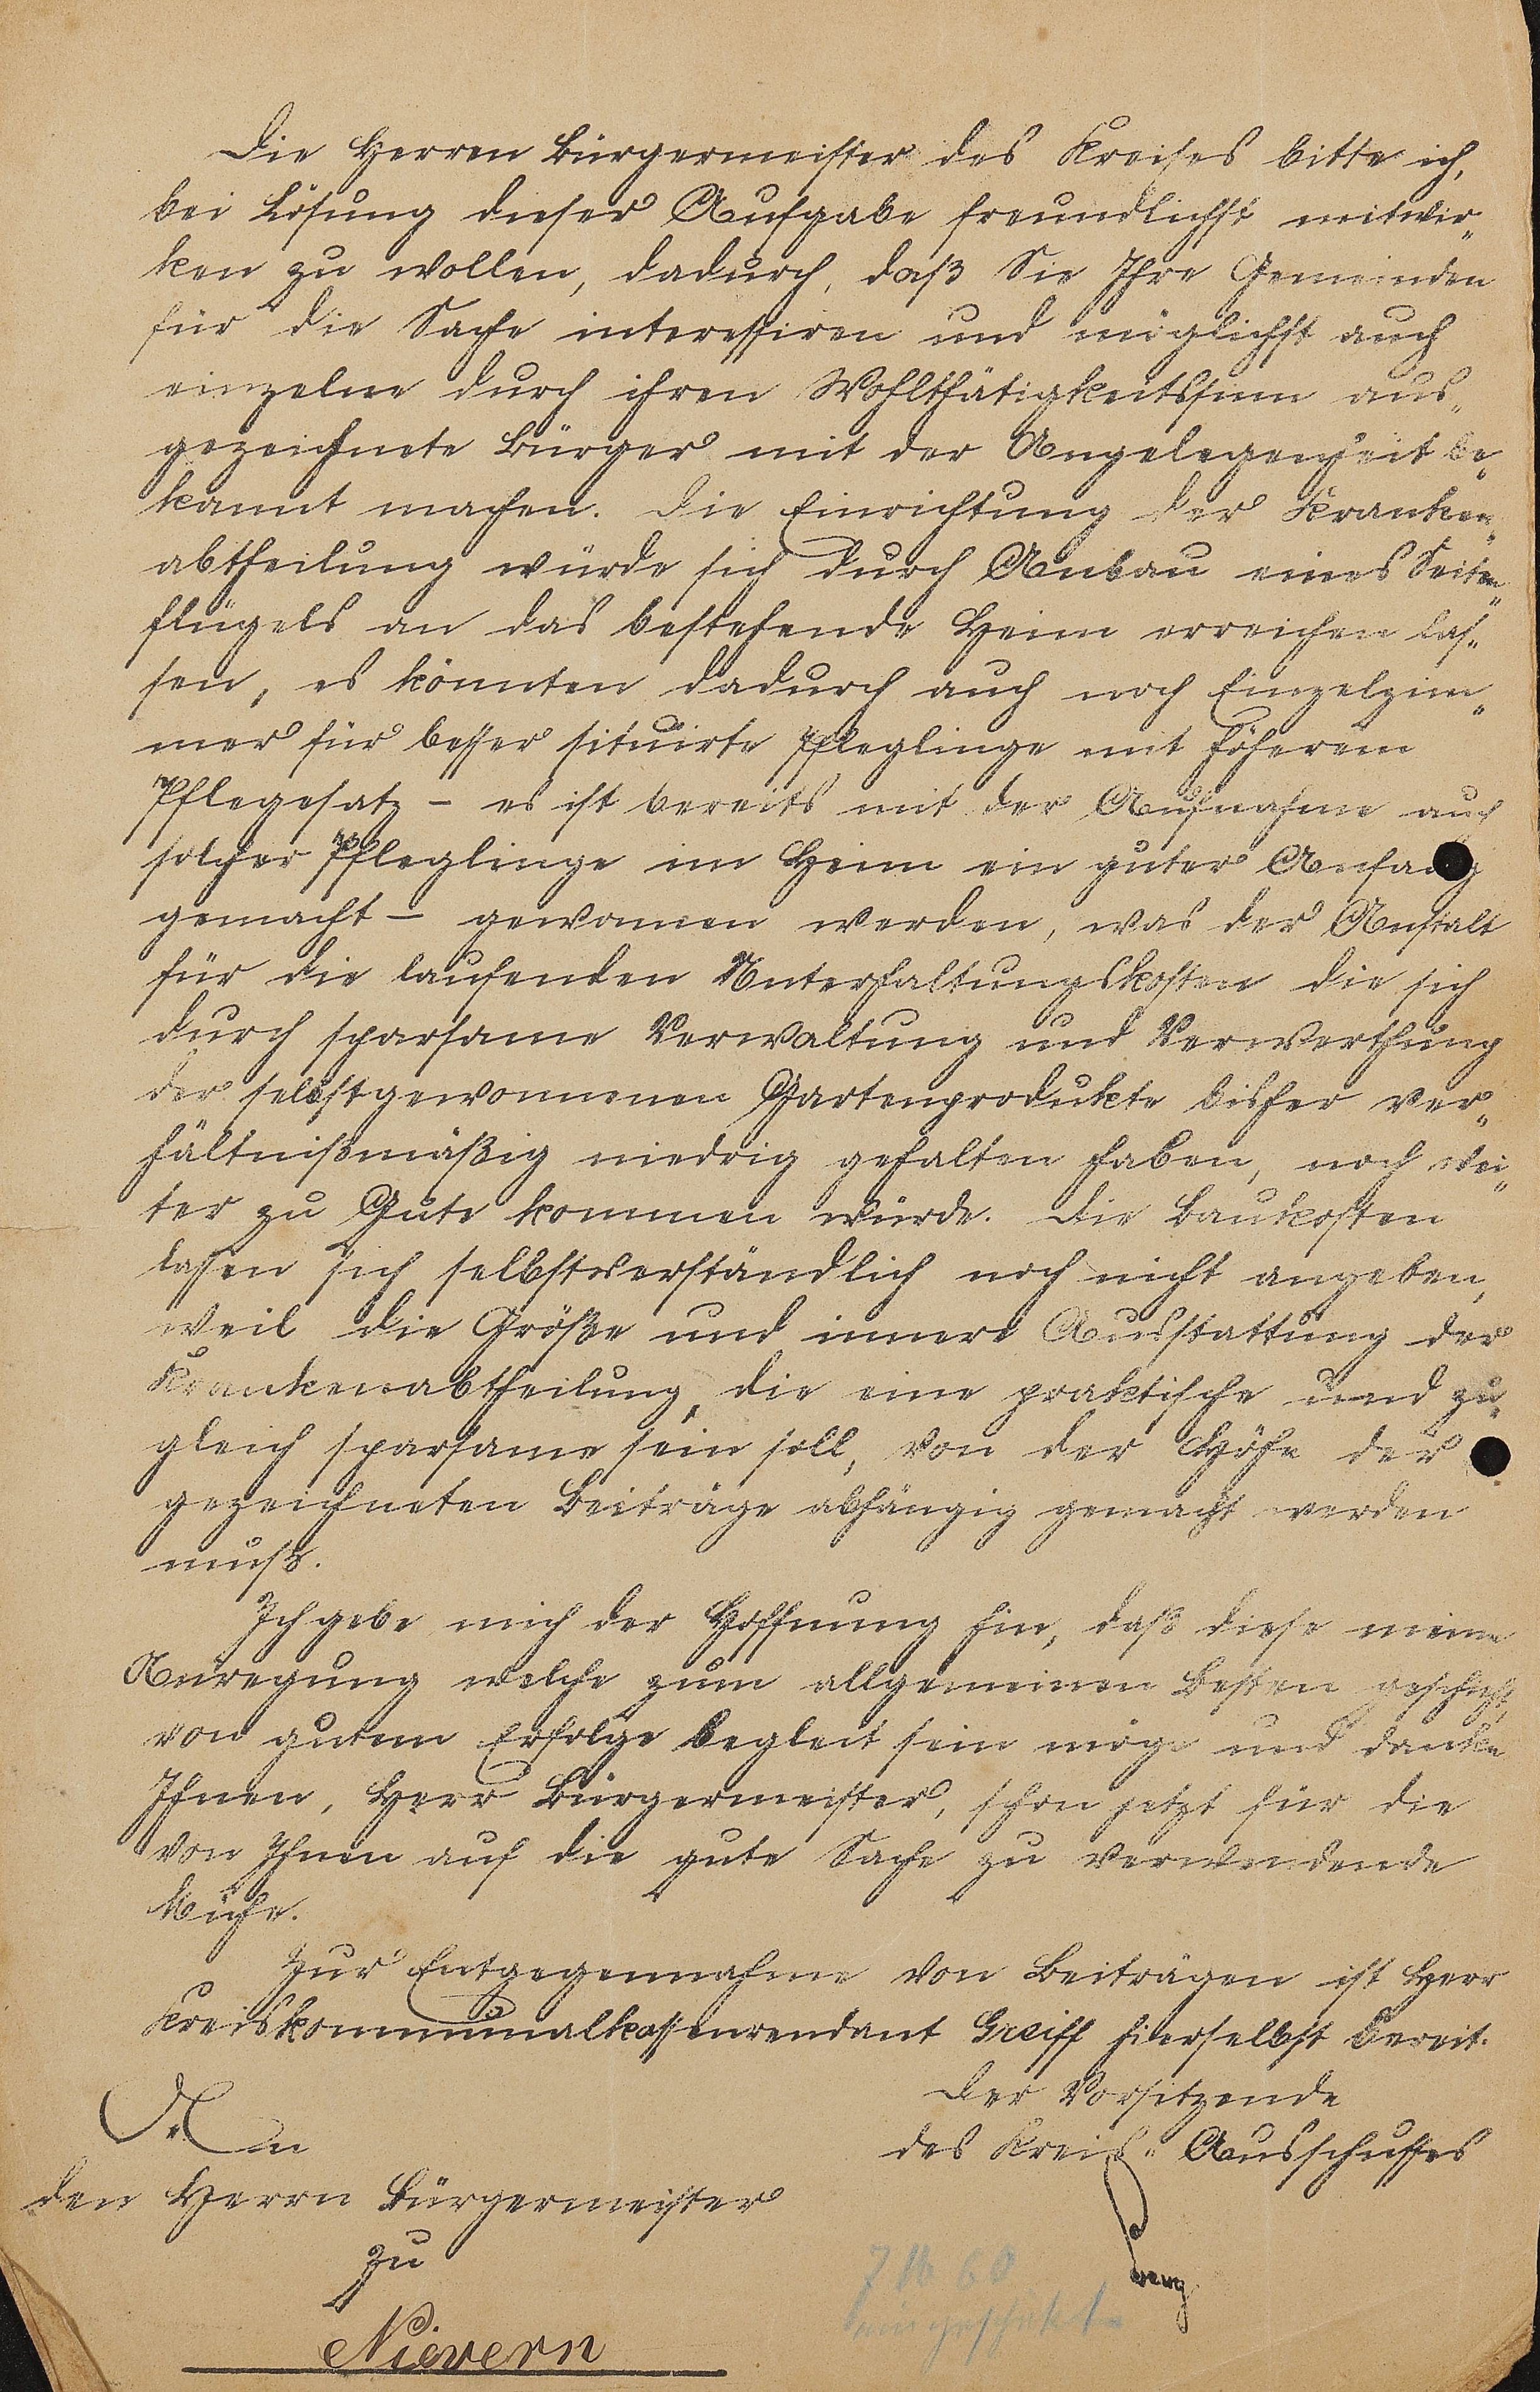 Die Herren Bürgermeister des Kreises bitte ich,
bei Lösung dieser Aufgabe freundlichst mitwir„
ken zu wollen, dadurch, daß Sie Ihre Gemeinden
für die Sache interessiren und möglichst auch
einzelne durch ihren Wohlthätigkeitssinn aus„
gezeichnete Bürger mit der Angelegenheit be„
kannt machen. Die Einrichtung der Kranken„
abtheilung würde sich durch Anbau eines Seiten„
flügels an das bestehende Heim erreichen las„
sen, es könnten dadurch auch noch Einzelzim„
mer für besser situirte Pfleglinge mit höherem
Pflegesatz – es ist bereits mit der Aufnahme auch
solcher Pfleglinge im Heim ein guter Anfang
gemacht – gewonnen werden, was der Anstalt
für die laufenden Unterhaltungskosten die sich
durch sparsame Verwaltung und Verwerthung
der selbstgewonnenen Gartenprodukte bisher ver„
hältnißmäßig niedrig gehalten haben, noch wei„
ter zu Gute kommen würde. Die Baukosten
lassen sich selbstverständlich noch nicht angeben,
weil die Größe und innere Ausstattung der
Krankenabtheilung, die eine praktische und zu„
gleich sparsame sein soll, von der Höhe der
gezeichneten Beiträge abhängig gemacht werden
muß.
Ich gebe mich der Hoffnung hin, daß diese meine
Anregung welche zum allgemeinen Besten geschieht,
von gutem Erfolge begleit sein möge und danke
Ihnen, Herr Bürgermeister, schon jetzt für die
von Ihnen auf die gute Sache zu verwendende
Mühe.
Zur Entgegennahme von Beiträgen ist Herr
Kreiskommunalkassenrendant Greiff hierselbst bereit.
Der Vorsitzende
des Kreis„Ausschusses
An
den Herrn Bürgermeister
zu
Nievern
7 M 60
eingeschickt